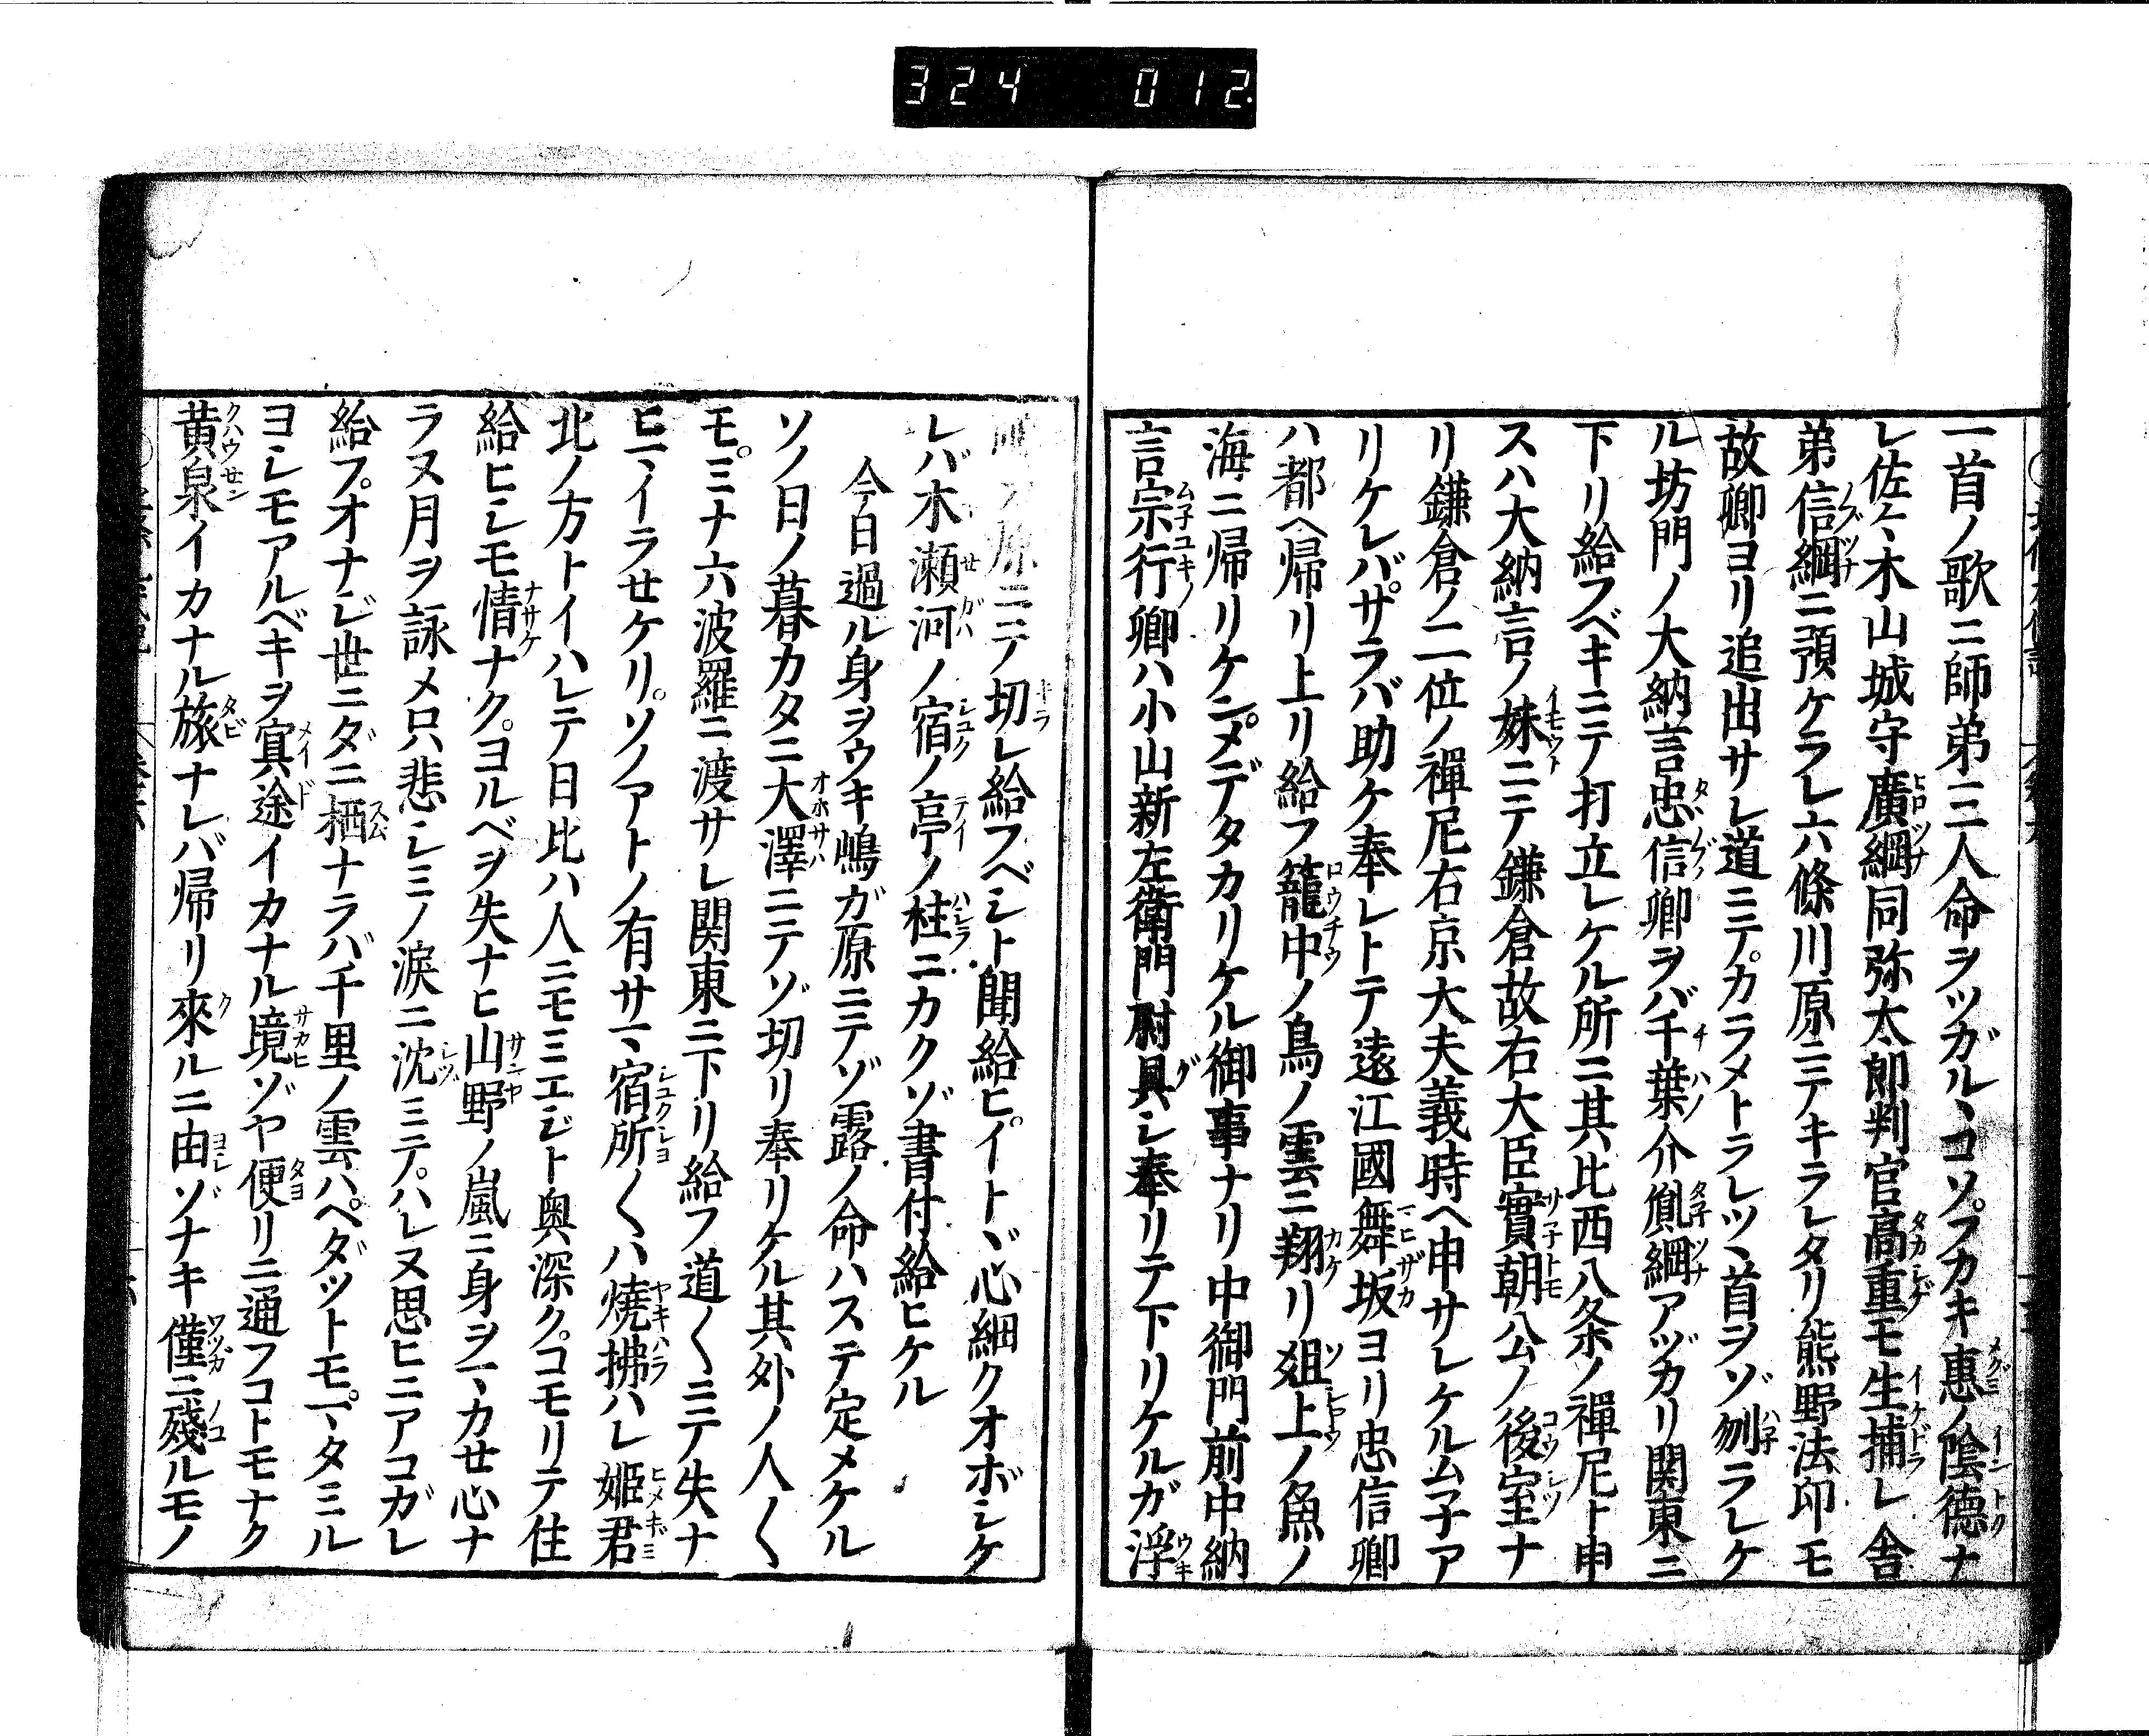 324 012.
一首ノ歌ニ師弟三人命ヲツガルヽコソフカキ惠ノ陰德ナ
レ佐々木山城守廣綱同弥太郎判官高重モ生捕レ舎
弟信綱ニ預ケラレ六條川原ニテキラレタリ熊野法印モ
故卿ヨリ追出サレ道ニテカラメトラレツヽ首ヲゾ刎ラレケ
ル坊門ノ大納言忠信卿ヲバ千葉介胤綱アヅカリ関東ニ
下リ給フベキニテ打立レケル所ニ其比西八条ノ禪尼ト申
スハ大納言ノ妹ニテ鎌倉故右大臣實朝公ノ後室ナ
リ鎌倉ノ二位ノ禪尼右京大夫義時ヘ申サレケルムネア
リケレバサラバ助ケ奉レトテ遠江國舞坂ヨリ忠信卿
ハ都ヘ帰リ上リ給フ籠中ノ鳥ノ雲ニ翔リ爼上ノ魚ノ
海ニ帰リケンメデタカリケル御事ナリ中御門前中納
言宗行卿ハ小山新左衛門尉具シ奉リテ下リケルガ浮
原ニテ切レ給フベシト聞給ヒイトヾ心細クオボシケ
レバ木瀬河ノ宿ノ亭ノ柱ニカクゾ書付給ヒケル
今日過ル身ヲウキ嶋ガ原ニテゾ露ノ命ハステ定メケル
ソノ日ノ暮カタニ大澤ニテゾ切リ奉リケル其外ノ人〱
モミナ六波羅ニ渡サレ関東ニ下リ給フ道〱ニテ失ナ
ヒマイラセケリソノアトノ有サマ宿所〱ハ燒拂ハレ姫君
北ノ方トイハレテ日比ハ人ニモミエジト奥深クコモリテ住
給ヒシモ情ナクヨルベヲ失ナヒ山野ノ嵐ニ身ヲマカセ心ナ
ラヌ月ヲ詠メ只悲シミノ淚ニ沈ミテハレヌ思ヒニアコガレ
給フオナジ世ニダニ栖ナラバ千里ノ雲ハヘダツトモマタミル
ヨシモアルベキヲ冥途イカナル境ゾヤ便リニ通フコトモナク
黄泉イカナル旅ナレバ帰リ來ルニ由ゾナキ僅ニ殘ルモノ